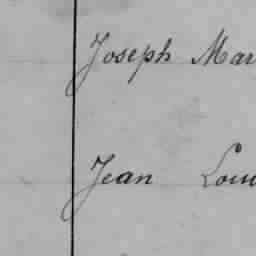 Joseph Mar
Jean Lou